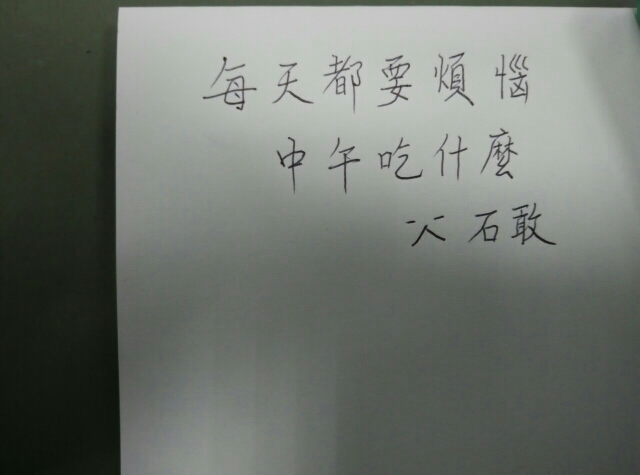 每天都要煩惱
中午吃什麼
石敢